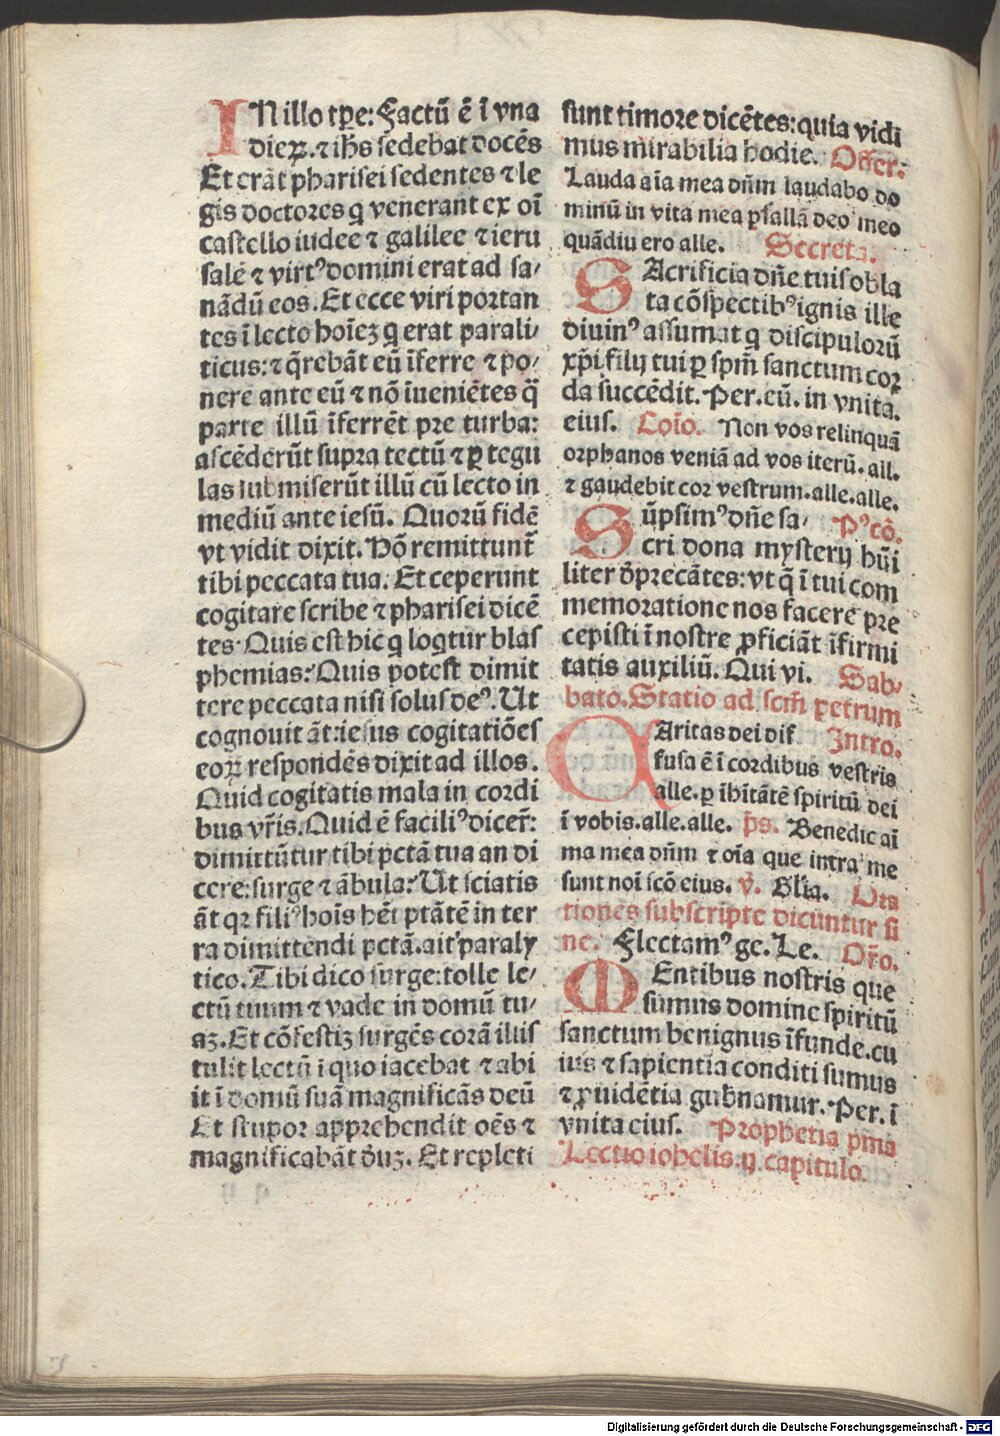 IN illo tꝑe: Factū ē ī vna
dieꝝ. ⁊ ihs sedebat docēs
Et erāt pharisei sedentes ⁊ le
gis doctores q venerant ex oī
castello iudee ⁊ galilee ⁊ ieru
salē ⁊ virtꝰ domini erat ad sa/
nādū eos. Et ecce viri portan
tes ī lecto hoīeꝫ q erat parali/
ticus: ⁊ q̄rebāt eū īferre ⁊ po/
nere ante eū ⁊ nō īueniētes q̈
parte illū īferrēt pre turba:
ascēderūt supra tectū ⁊ ꝑ tegu
las submiserūt illū cū lecto in
mediū ante iesū. Quorū fidē
vt vidit dixit. Hō remittunt̄
tibi peccata tua. Et ceperunt
cogitare scribe ⁊ pharisei dicē
tes. Quis est hic q loqtur blas
phemias? Quis potest dimit
tere peccata nisi solus deꝰ. Ut
cognouit āt iesus cogitatiōes
eoꝝ respondēs dixit ad illos.
Quid cogitatis mala in cordi
bus vr̄is. Quid ē faciliꝰ dicer̄:
dimittūtur tibi pctā tua an di
cere: surge ⁊ ābula? Ut sciatis
āt qꝛ filiꝰ hoīs hēt ptātē in ter
ra dimittendi pctā. ait paraly
tico. Tibi dico surge: tolle le/
ctū tuum ⁊ vade in domū tu/
aꝫ. Et cōfestiꝫ surgēs corā illis
tulit lectū ī quo iacebat ⁊ abi
it ī domū suā magnificās deū
Et stupor apprehendit oēs ⁊
magnificabāt dūꝫ. Et repleti
sunt timore dicētes: quia vidi
mus mirabilia hodie. Offer:
Lauda aīa mea dn̄m laudabo do
minū in vita mea psallā deo meo
quādiu ero alle. Secreta.
SAcrificia dn̄e tuis obla
ta cōspectibꝰ ignis ille
diuinꝰ assumat q discipulorū
xp̄i filij tui ꝑ spm̄ sanctum coꝝ
da succēdit. Per. eū. in vnita.
eius. Coīo. Non vos relinquā
orphanos veniā ad vos iterū. all.
⁊ gaudebit cor vestrum. alle. alle.
Sūpsimꝰ dn̄e sa/ Pꝰcō.
cri dona mysterij hūi
liter dp̄recātes: vt q̄ ī tui com
memoratione nos facere pre
cepisti ī nostre ꝓficiāt īfirmi
tatis auxiliū. Qui vi. Sab/
bato. Statio ad scm̄ petrum
CAritas dei dif Intro.
fusa ē ī cordibus vestris
alle. ꝑ ihītātē spiritū dei
ī vobis. alle. alle. ps. Benedic aī
ma mea dn̄m ⁊ oīa que intra me
sunt noī scō eius. v̄. Glīa. Ora
tiones subscripte dicuntur si
ne. Flectamꝰ ge. Le. Or̄o.
MEntibus nostris que
sumus domine spiritū
sanctum benignus īfunde. cu
ius ⁊ sapientia conditi sumus
⁊ ꝓuidētia gubnamur. Per. ī
vnita eius. Prophetia pma
Lectio iohelis. ij. capitulo.
Digitalisierung gefördert durch die Deutsche Forschungsgemeinschaft - DFG